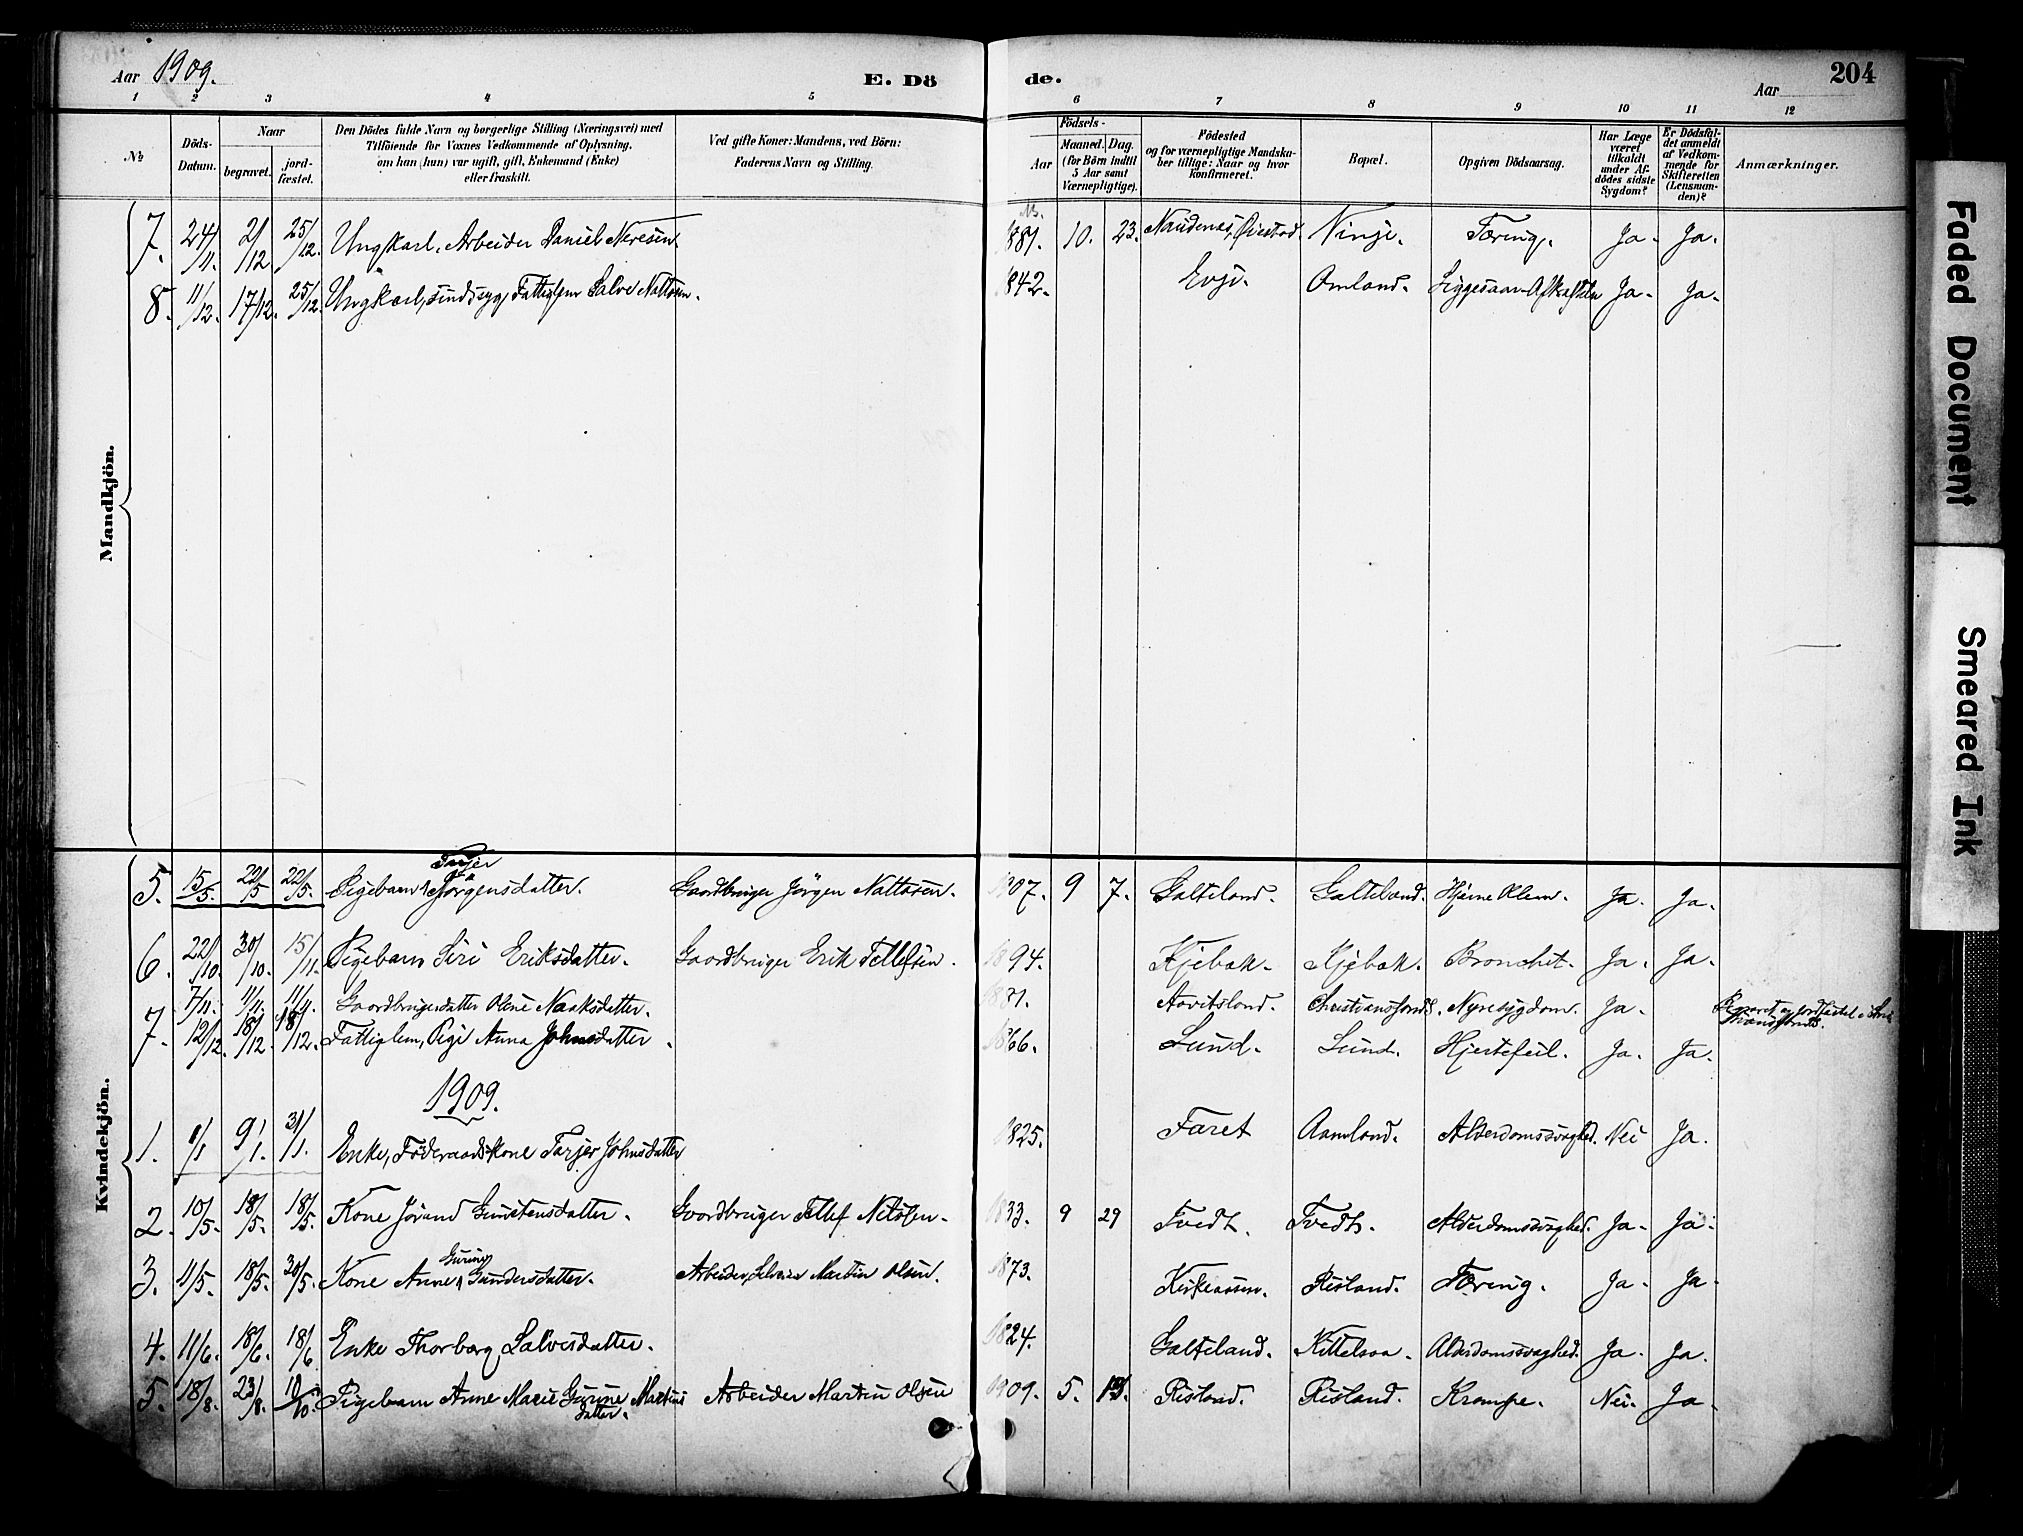 Aar 1909.
E. Dö
de.
Aar
204
1 2 3 4 5 6 7 8 9 10 11 12
№
Döds-Datum.
Naar
begravet.
jordfæstet.
Den Dödes fulde Navn og borgerlige Stilling (Næringsvei) med Tilföiende for Voxnes Vedkommende af Oplysning, om han (hun) var ugift, gift, Enkemand (Enke) eller fraskilt.
Ved gifte Koner: Mandens, ved Börn: Faderens Navn og Stilling.
Födsels-
Aar
Maaned. Dag.
(for Börn indtil 5 Aar samt Værnepligtige).
Födested og for værnepligtige Mandskaber tillige: Naar og hvor konfirmeret.
Bopæl.
Opgiven Dödsaarsag.
Har Læge været tilkaldt under Afdödes sidste Sygdom?
Er Dödsfaldet anmeldt af Vedkommende for Skifteretten (Lensmanden)?
Anmærkninger.
Mandkjön.
7. 24/11. 2/12 25/12. Ungkarl, Arbeider Daniel Neresen 1881. 10. 23. Øiestad. Færing. Ja. Ja.
8. 11/12. 17/12. 25/12. Ungkarl, sindssyg, Fattiglem Salve Nattesen. 1842. Evje. Omland. Ja. Ja.
Kvindekjön.
Torjer
5. 15/5. 22/5 22/5. Pigebarn Jörgensdatter. Gaardbruger Jörgen Nattesen. 1907. 9 7. Galteland. Galteland. Ja. Ja.
6. 22/10. 30/10. 15/11. Pigebarn Siri Eriksdatter. Gaardbruger Erik Tellefsen. 1894. Kjebak. Kjebak. Bronchit. Ja. Ja.
7/11. 11/11. 11/11. Gaardbrugerdatter Olene 1881. Aavitsland. Christianssand. Nyresygdom. Ja.
7. 12/12. 18/12. 18/12. Fattiglem, Pige Anna Johnsdatter. 1866. Lund. Lund. Hjertefeil. Ja. Ja.
1909.
1. 1/1 9/1. 31/1. Enke, Föderaadskone Torjer Johnsdatter 1825. Faret Aamland. Alderdomssvaghed. Nei Ja.
2. 10/5. 18/5. 18/5. Kone Jörand Gunstensdatter. Gaardbruger Tellef Nilssen. 1833. 9 29 Tvedt. Tvedt. Alderdomssvaghed. Ja. Ja.
Gurine
3. 11/5. 18/5. 30/5. Kone Anne Gundersdatter. Arbeider, Selveier Martin Olsen. 1873. Risland. Færing. Ja. Ja.
4. 11/6. 18/6. 18/6 Enke Thorborg Salvesdatter. 1824. Galteland. Kittelsaa. Alderdomssvaghed. Ja. Ja.
5. 18/8. 23/8. 10/10. Pigebarn Anne Marie Gurine Martinsdatter. Arbeider Martin Olsen 1909. 5. 15. Risland. Risland. Krampe. Nei. Ja.
Faded Document
Smeared Ink